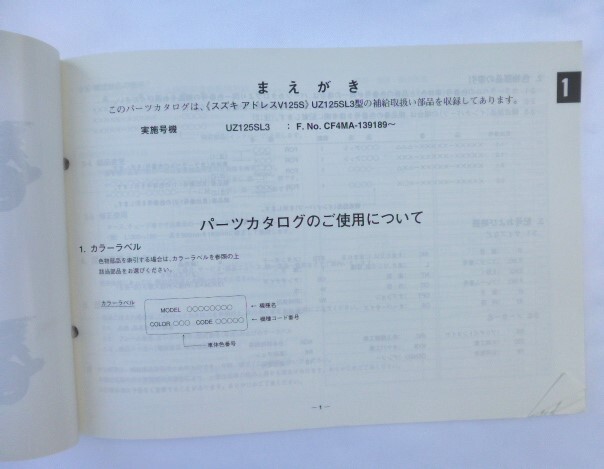 まえがき
1
このパーツカタログは、《スズキ アドレスV125S》UZ125SL3型の補給取扱い部品を収録してあります。
実施号機 UZ125SL3 : F. No. CF4MA-139189～
パーツカタログのご使用について
1. カラーラベル
色物部品を索引する場合は、カラーラベルを参照の上
該当部品をお選びください。
カラーラベル
MODEL ○○○○○○○○ ← 機種名
COLOR ○○○ CODE ○○○○○ ← 機種コード番号
車体色番号
― 1 ―